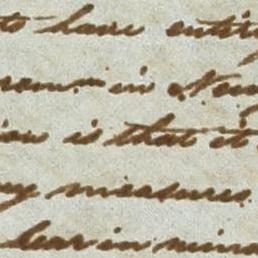 to have entir
in New
is that it
measures
bear in mind